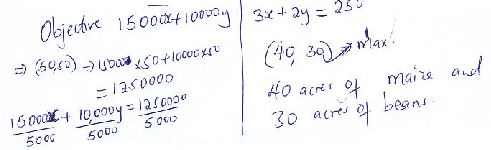 Objective 15000x+10000y
⇒ (50,50) → 15000 x 50 + 10000 x 50
= 1250000
15000x/5000 + 10,000y/5000 = 1250000/5000
3x + 2y = 250
(40, 30) → Max.
40 acres of maize and
30 acres of beans.